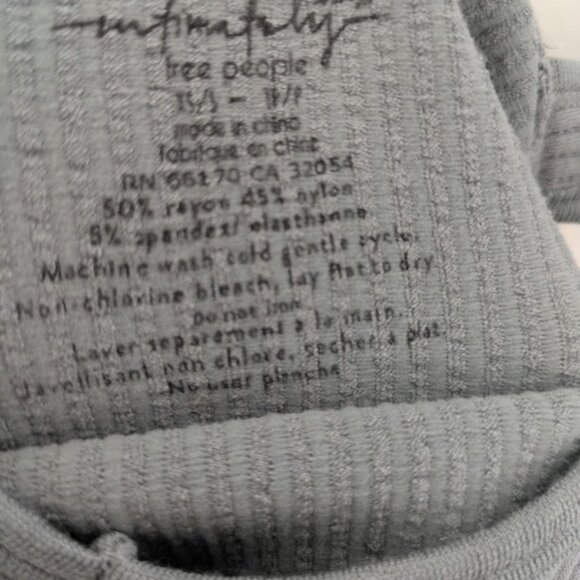 intimately
free people
XS/S -
made in china
fabrique en chine
RN 66170 CA 32054
50% rayon 45% nylon
5% spandex/ elasthanne
Machine wash cold gentle cycle.
Non-chlorine bleach, lay flat to dry
Do not iron
Laver separement à la main.
Javellisant non chlore, secher à plat.
Ne user planche